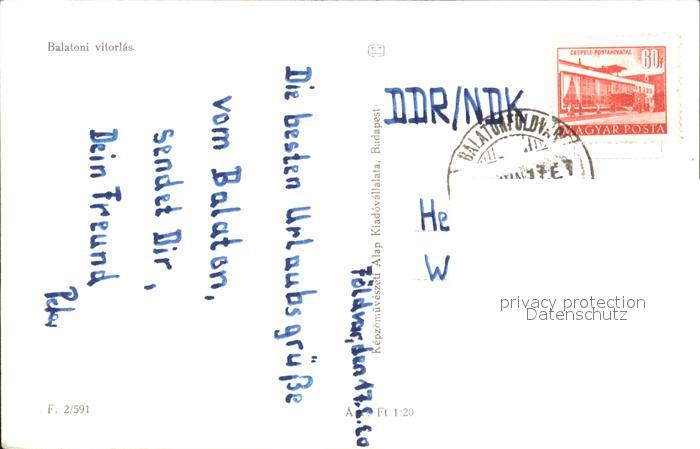 Balatoni vitorlás
Földvar, den 17.8.60
Die besten Urlaubsgrüße
vom Balaton,
sendet Dir,
Dein Freund
Peter
F. 2/591
Képzőművészeti Alap Kiadóvállalata, Budapest
Ft 1·20
DDR/NDK
He
W
CSEPELI POSTAHIVATAL
60f
MAGYAR POSTA
BALATONFÖLDVÁR
privacy protection
Datenschutz